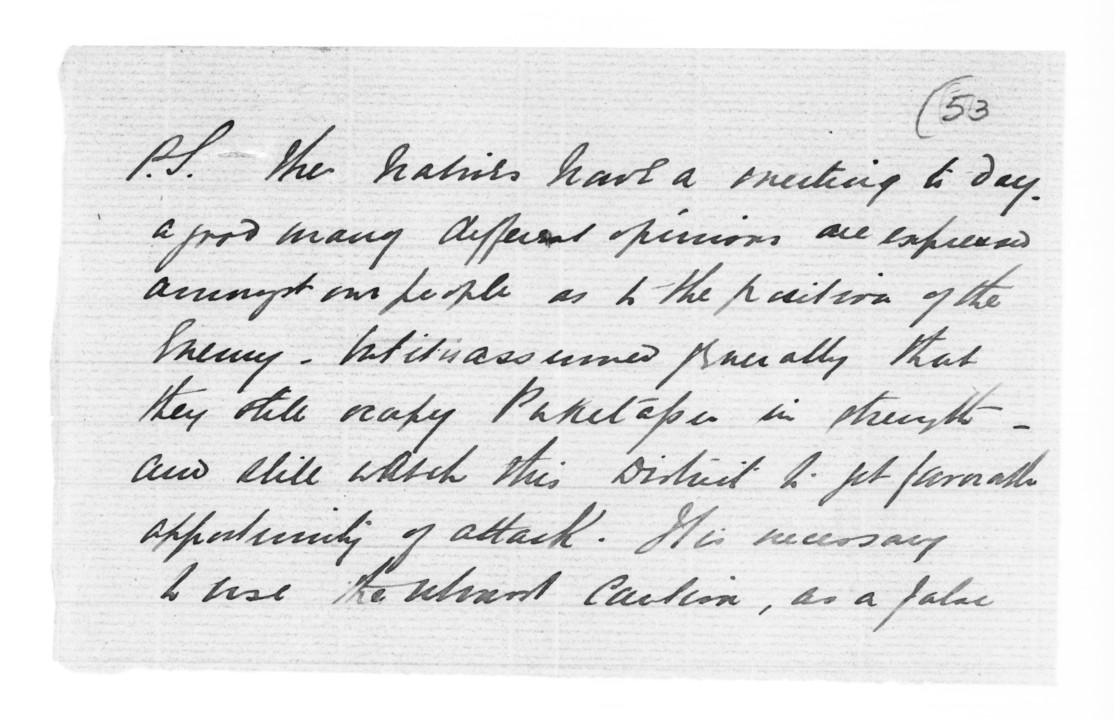 (53
P.S. The Natives have a meeting to day.
a good many different opinions are expressed
amongst our people as to the position of the
Enemy - but it is assumed generally that
they still occupy Puketapu in strength -
and still watch this District to get favorable
opportunity of attack. It is necessary
to use the utmost Caution, as a false